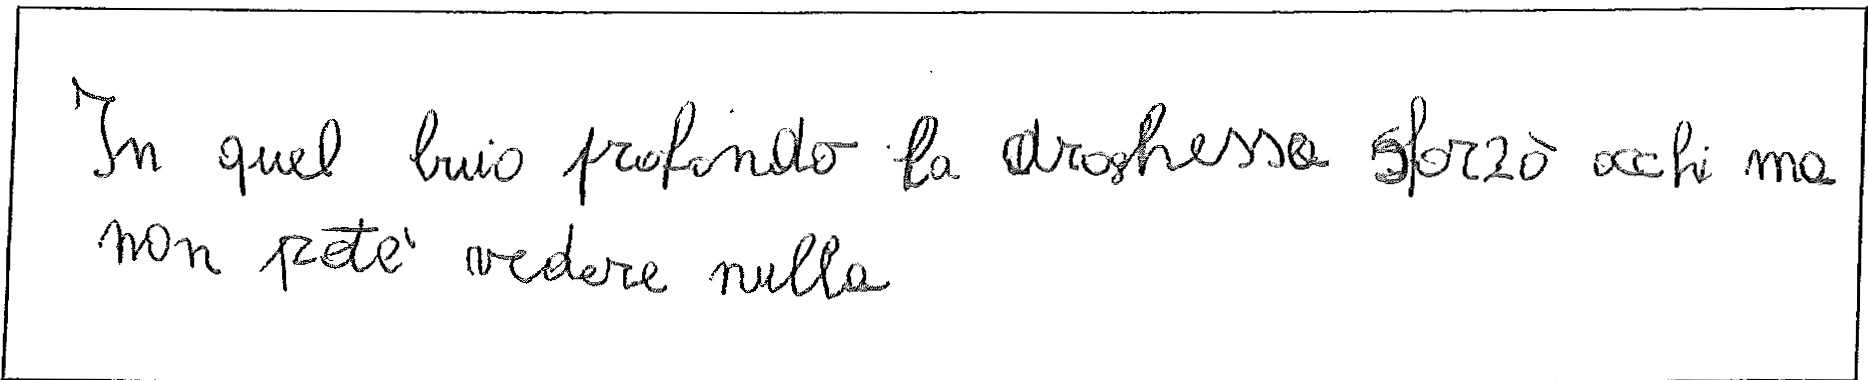 In quel buio profondo la droghessa sforzò occhi ma
non potè vedere nulla